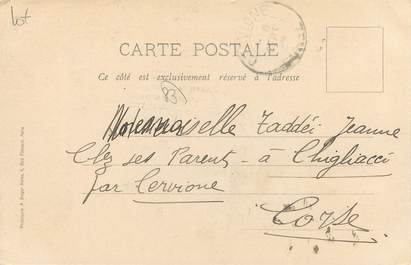 Lot
CARTE POSTALE
Ce côté est exclusivement réservé à l'adresse
Mademoiselle Taddéi Jeanne
Chez ses Parents - à Chigliacci
par Cervione
Corse